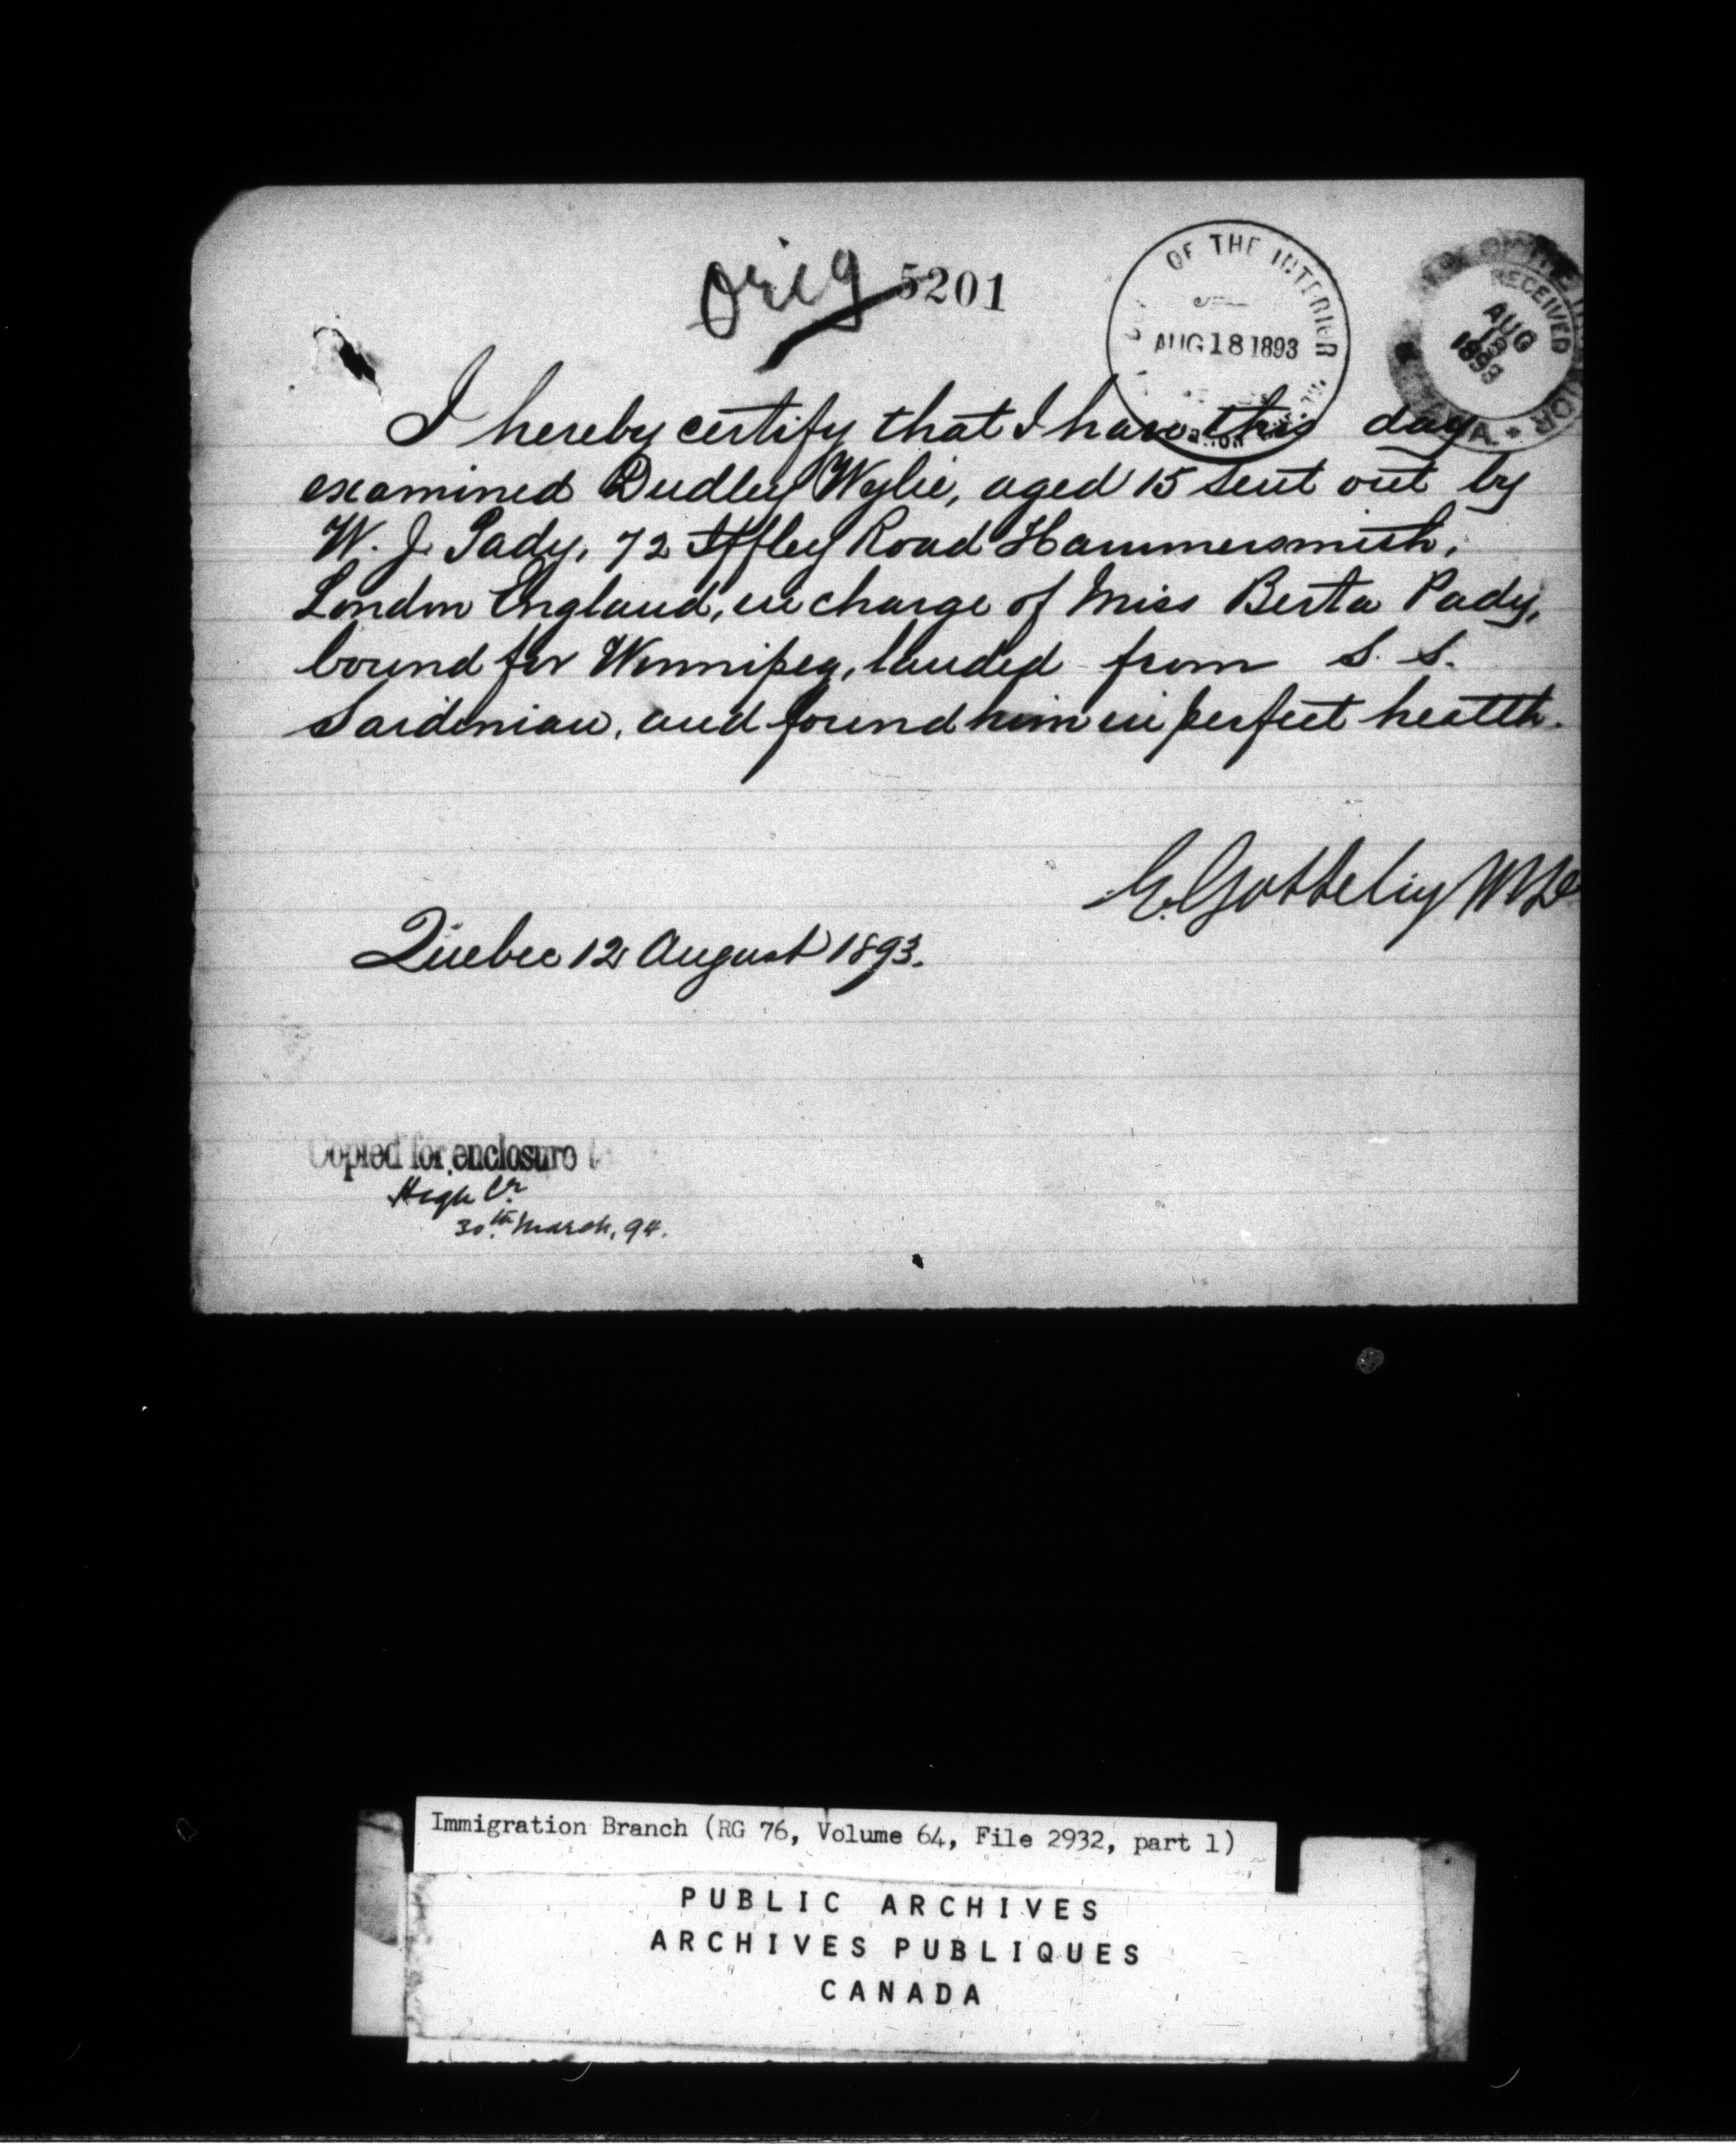 Orig 5201
OF THE INTERIOR
AUG 18 1893
RECEIVED
AUG
1893
I hereby certify that I have this day
examined Dudley Wylie, aged 15 sent out by
W. J. Pady, 72 Iffley Road Hammersmith,
London England, in charge of Miss Berta Pady,
bound for Winnipeg, landed from S. S.
Sardinian, and found him in perfect health.
Quebec 12 August 1893.
Copied for enclosure
High Cr
30th March, 94.
Immigration Branch (RG 76, Volume 64, File 2932, part 1)
PUBLIC ARCHIVES
ARCHIVES PUBLIQUES
CANADA